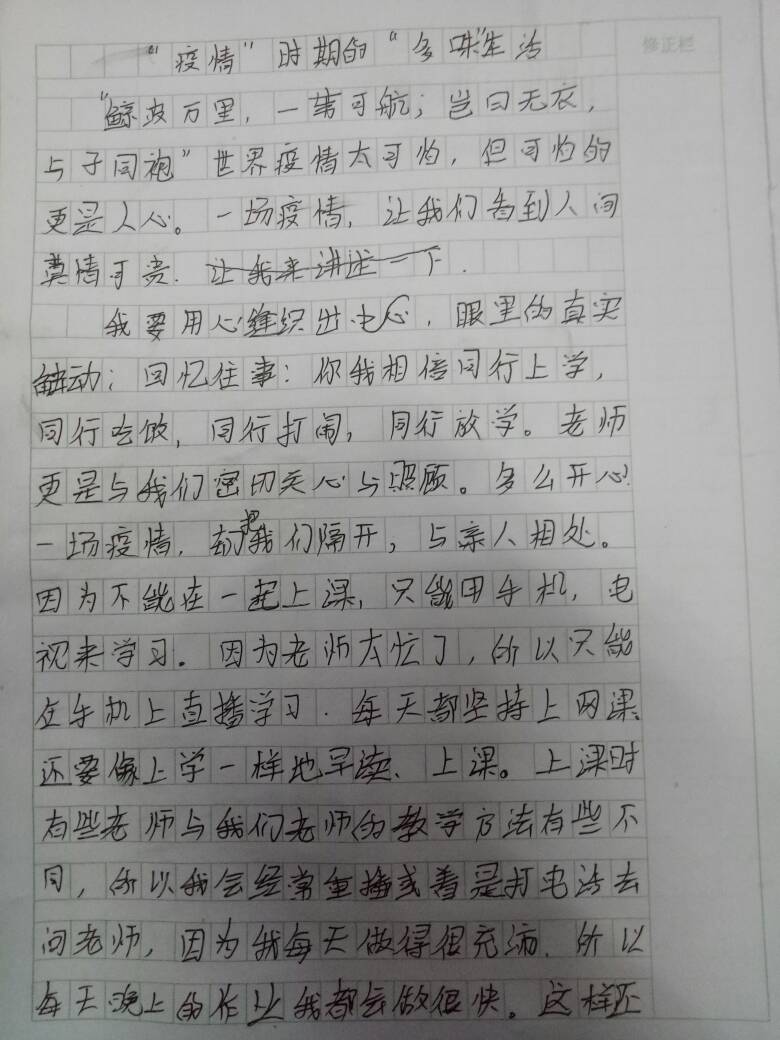 “疫情”时期的“多味”生活
修正栏
“鲸波万里，一苇可航；岂曰无衣，
与子同袍”世界疫情太可怕，但可怕的
更是人心。一场疫情，让我们看到人间
真情可贵．让我来讲述一下．
我要用心缝织出心，眼里的真实
触动；回忆往事：你我相信同行上学，
同行吃饭，同行打闹，同行放学。老师
更是与我们密切关心与照顾。多么开心
一场疫情，却把我们隔开，与亲人相处。
因为不能在一起上课，只能用手机，电
视来学习。因为老师太忙了，所以只能
在手机上直播学习．每天都坚持上网课、
还要像上学一样地早读、上课。上课时
有些老师与我们老师的教学方法有些不
同，所以我会经常重播或着是打电活去
问老师，因为我每天做得很充沛．所以
每天晚上的作业我都会做很快。这样还